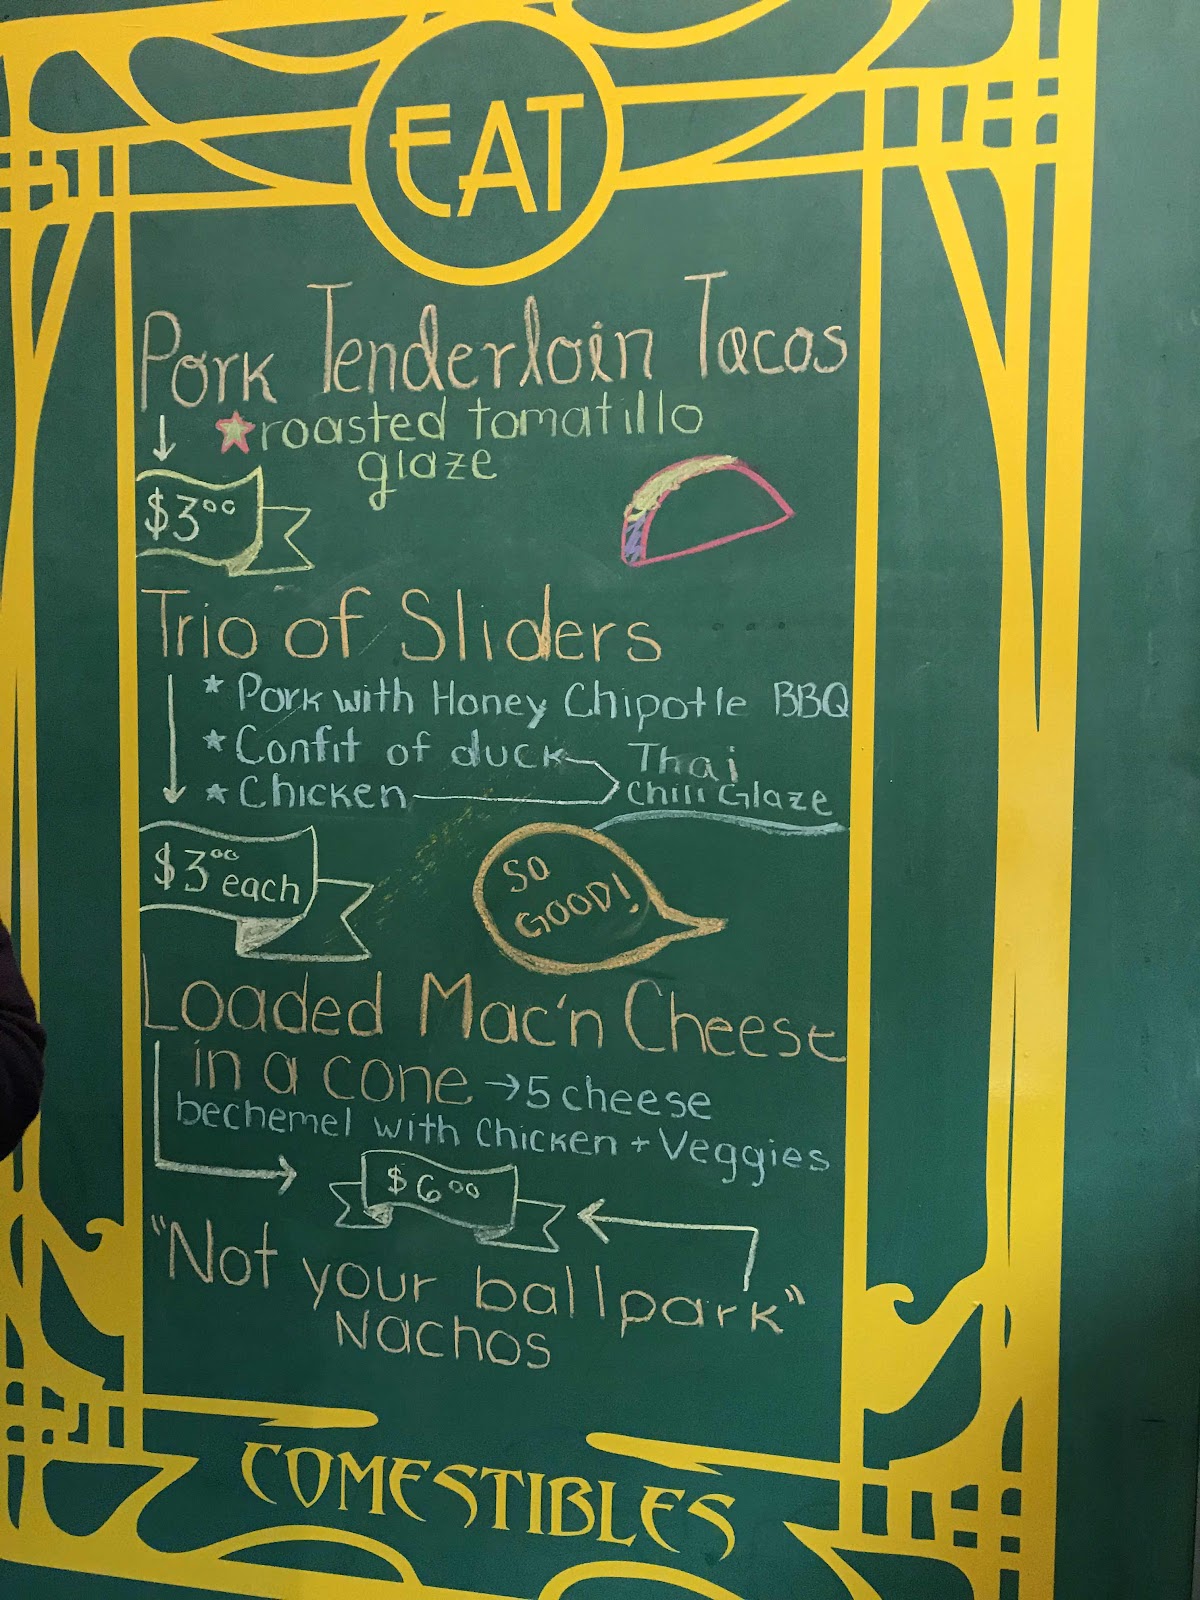 EAT
Pork Tenderloin Tacos
roasted tomatillo
glaze
$3⁰⁰
Trio of Sliders
* Pork with Honey Chipotle BBQ
* Confit of duck
* Chicken
Thai
Chili Glaze
$3⁰⁰ each
SO
GOOD!
Loaded Mac'n Cheese
in a cone → 5 cheese
bechemel with Chicken + Veggies
$6⁰⁰
"Not your ballpark"
Nachos
COMESTIBLES